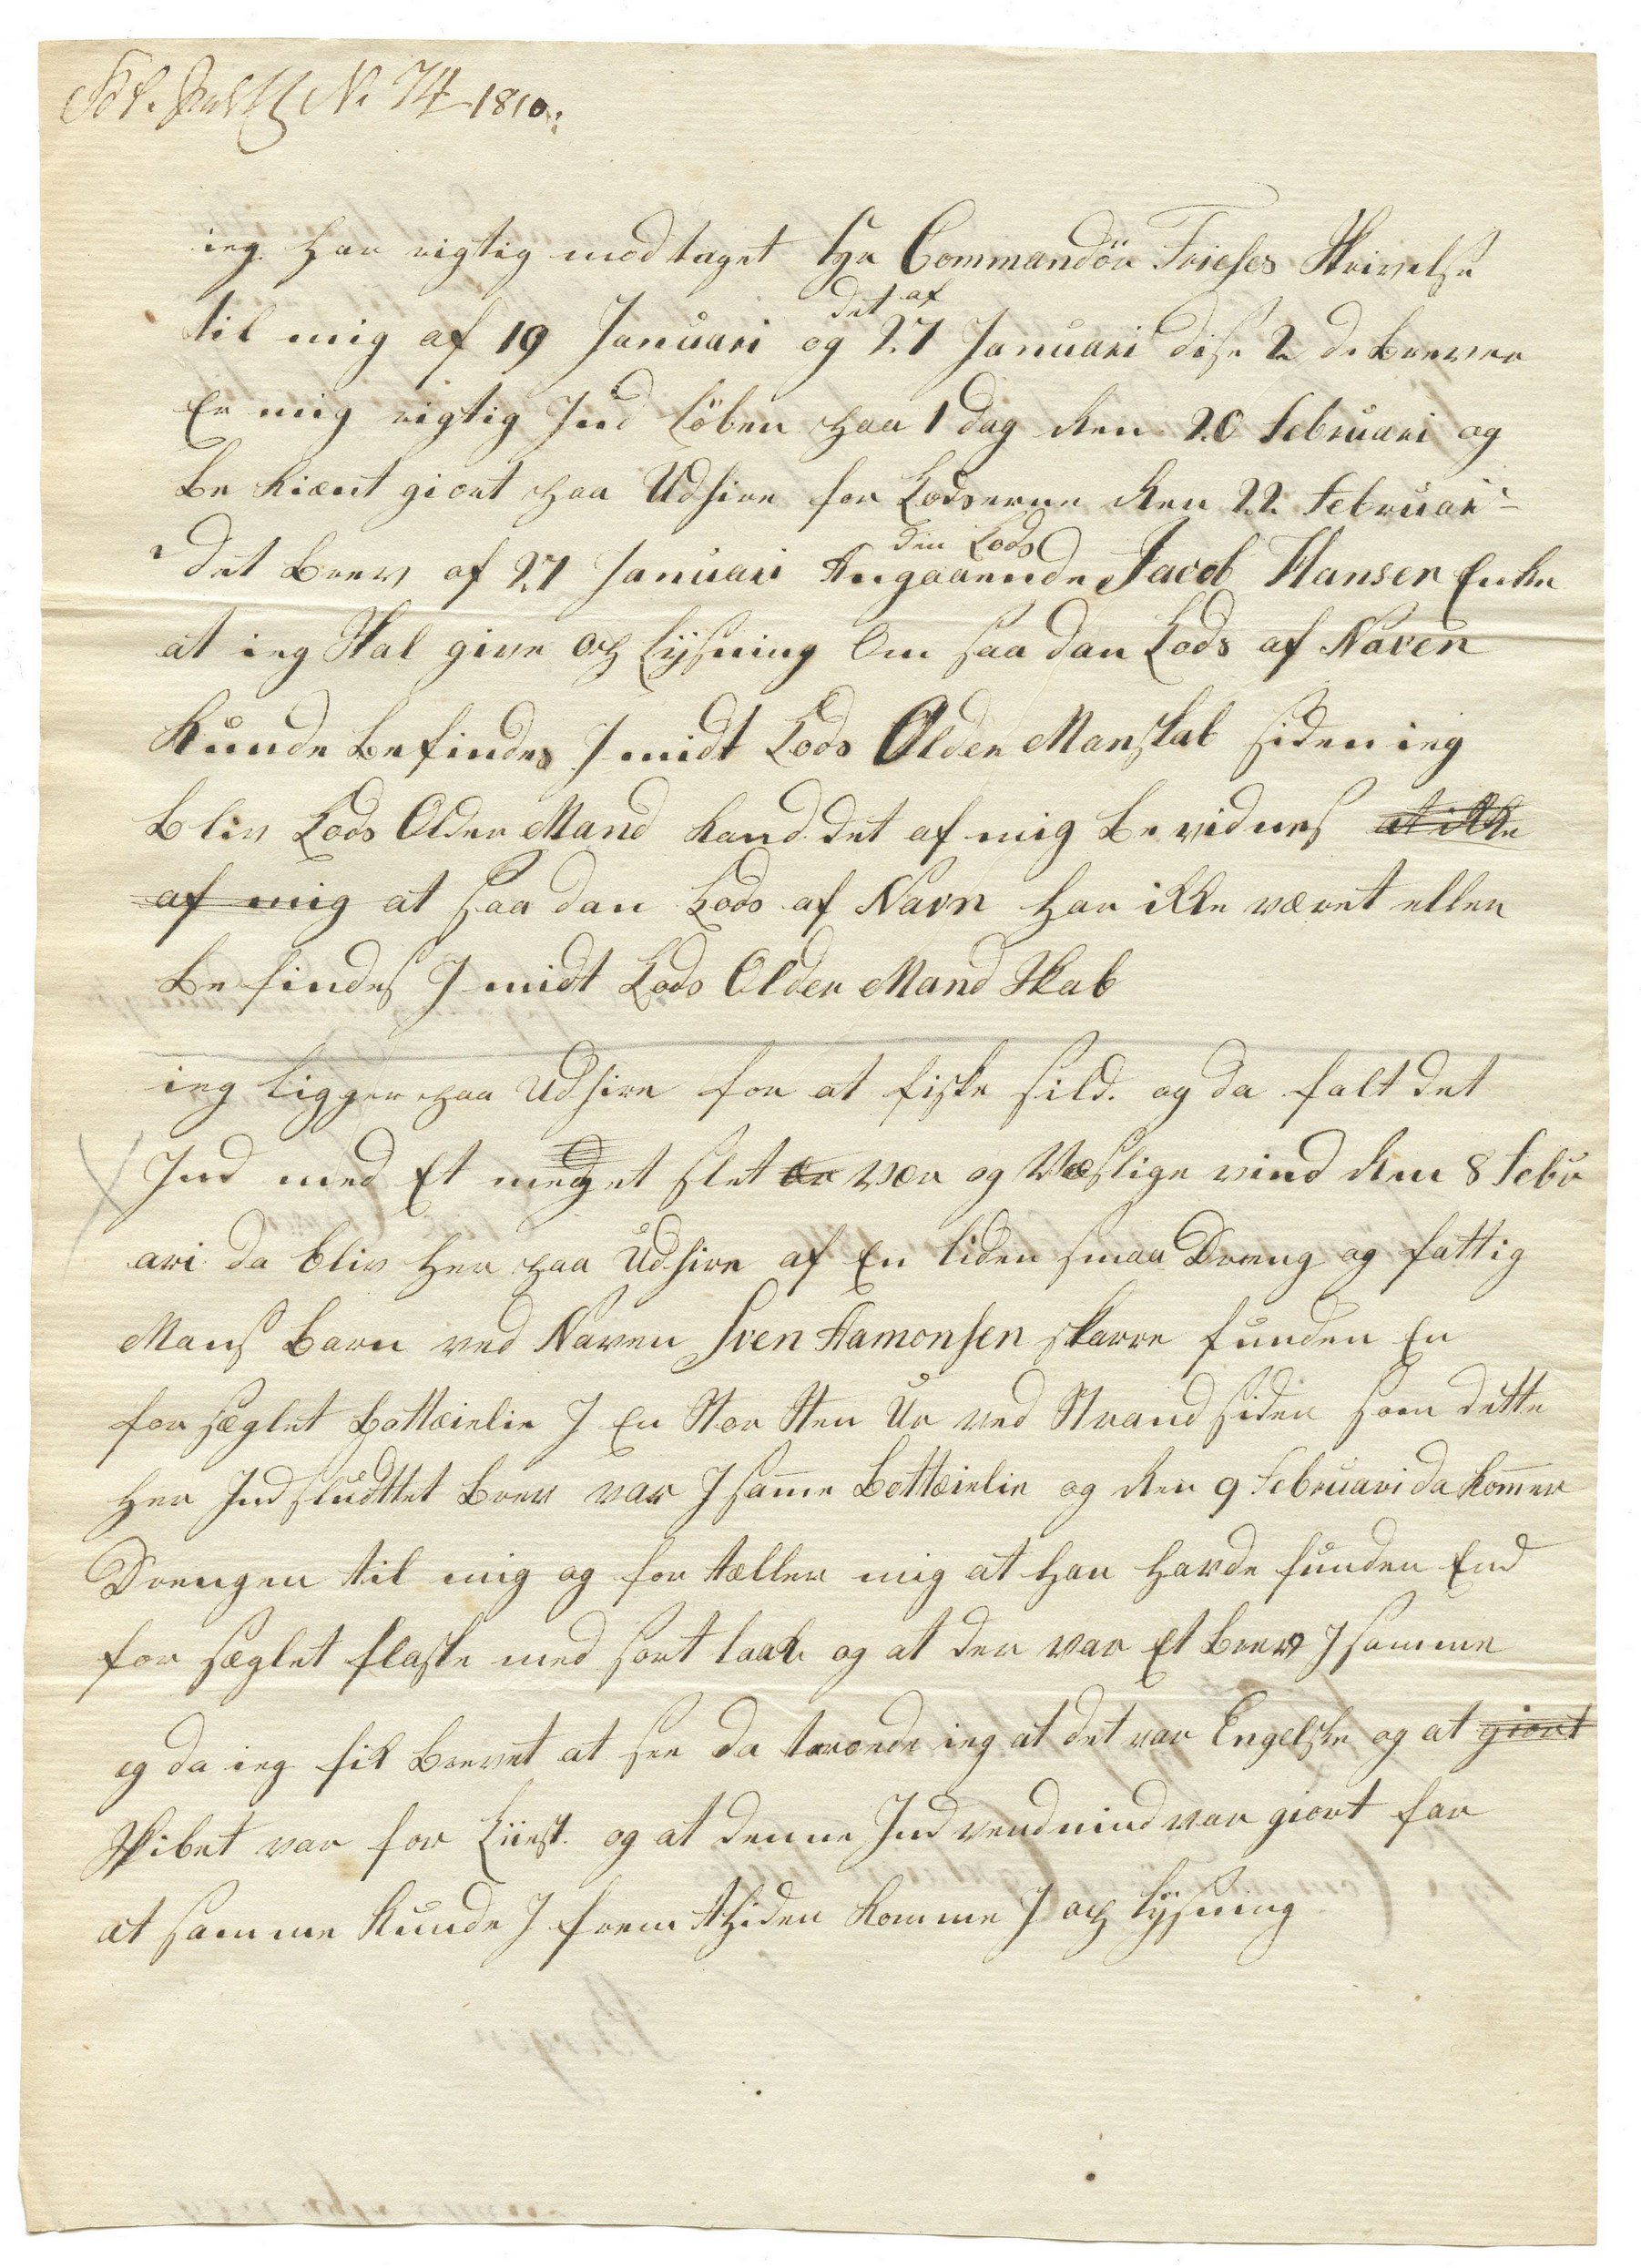 N. 74 1810.
ieg har rigtig modtaget Hr Commandör Frieses Skrivelse
til mig af 19 Januari og det af 27 Januari dise 2 de brever
Er mig rigtig Ind löben paa 1 dag den 20 Februari og
be kiænt giort paa Udsire for Lodserne den 22 Februari
det brev af 27 Januari Angaaende din Lods Jacob Hansen Enke
at ieg Skal give op lÿsning Om saa dan Lods af Naven
kunde befindes I midt Lods Older Manskab siden ieg
bliv Lods Older Mand kand det af mig be vidnes at ikke
af mig at saa dan Lods af Navn har ikke været eller
be findes I midt Lods Older Mand Skab
ieg ligger paa Udsire for at fiske sild. og da falt det
Ind med Et meget slet vær og Væstlige vind den 8 Febru
ari da bliv her paa Udsire af En liden smaa Dreng og fattig
Mans barn ved Naven Sven Aamonsen funden En
for seglet Bottæielie I En Stor Sten Ur ved Strand siden som dette
her Indsludttet brev var I same Bottæielie og den 9 Februari da komer
Drengen til mig og for tæller mig at han havde funden End
for seglet flaske med sort laak og at der var Et brev I samme
og da ieg fik brevet at see da troede ieg at det var Engelske og at giort
Skibet var for Liist. og at denne Ind vendnind var giort for
at samme kunde I frem thiden komme I op lÿsning